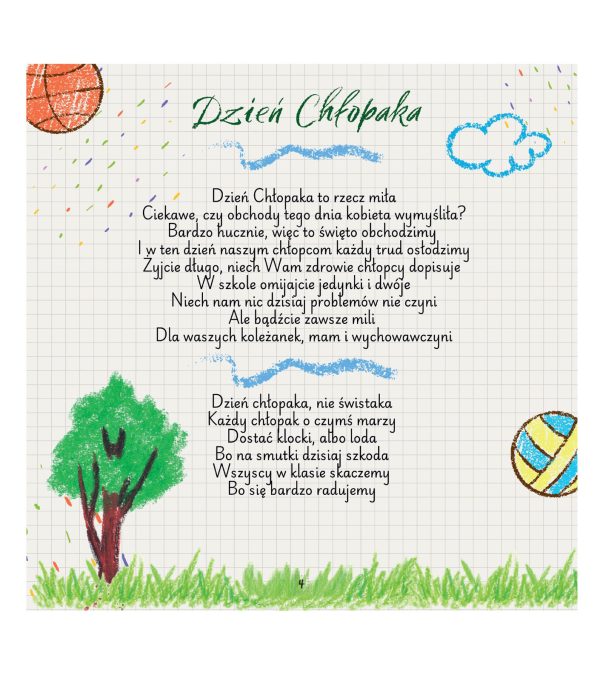 Dzień Chłopaka
Dzień Chłopaka to rzecz miła
Ciekawe, czy obchody tego dnia kobieta wymyśliła?
Bardzo hucznie, więc to święto obchodzimy
I w ten dzień naszym chłopcom każdy trud osłodzimy
Żyjcie długo, niech Wam zdrowie chłopcy dopisuje
W szkole omijajcie jedynki i dwóje
Niech nam nic dzisiaj problemów nie czyni
Ale bądźcie zawsze mili
Dla waszych koleżanek, mam i wychowawczyni
Dzień chłopaka, nie świstaka
Każdy chłopak o czymś marzy
Dostać klocki, albo loda
Bo na smutki dzisiaj szkoda
Wszyscy w klasie skaczemy
Bo się bardzo radujemy
4